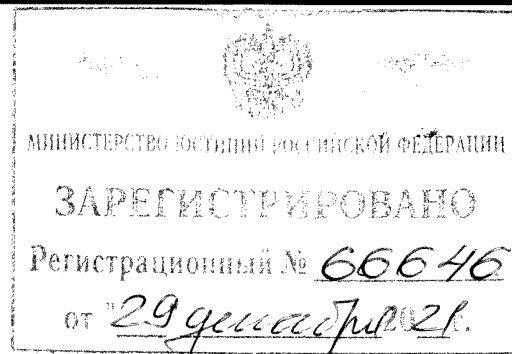 МИНИСТЕРСТВО ЮСТИЦИИ РОССИЙСКОЙ ФЕДЕРАЦИИ
ЗАРЕГИСТРИРОВАНО
Регистрационный № 66646
от "29 декабря 2021 г.